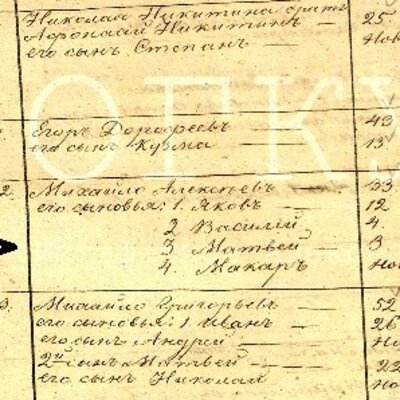 Николай Никитина братъ 25
Афонасий Никитинъ — Нов
его сынъ Степанъ —
Егоръ Дорофеевъ 43
его сынъ Кузма — 13
2. Михайло Алексѣевъ — 33
его сыновья: 1. Яковъ — 12
2 Василий 4.
3 Матвей — 3
4. Макаръ но
3. Михайло Григорьевъ — 52
его сыновья: 1 Иванъ — 26
его сынъ Андрей — но
2й сынъ Матвей — 22
его сынъ Николай но